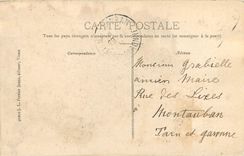 CARTE POSTALE
Tous les pays étrangers n'acceptent pas la correspondance au recto (se renseigner à la poste)
Correspondance
Adresse
Monsieur Grabielle
ancien Maire
Rue des
Montauban
Tarn et garonne